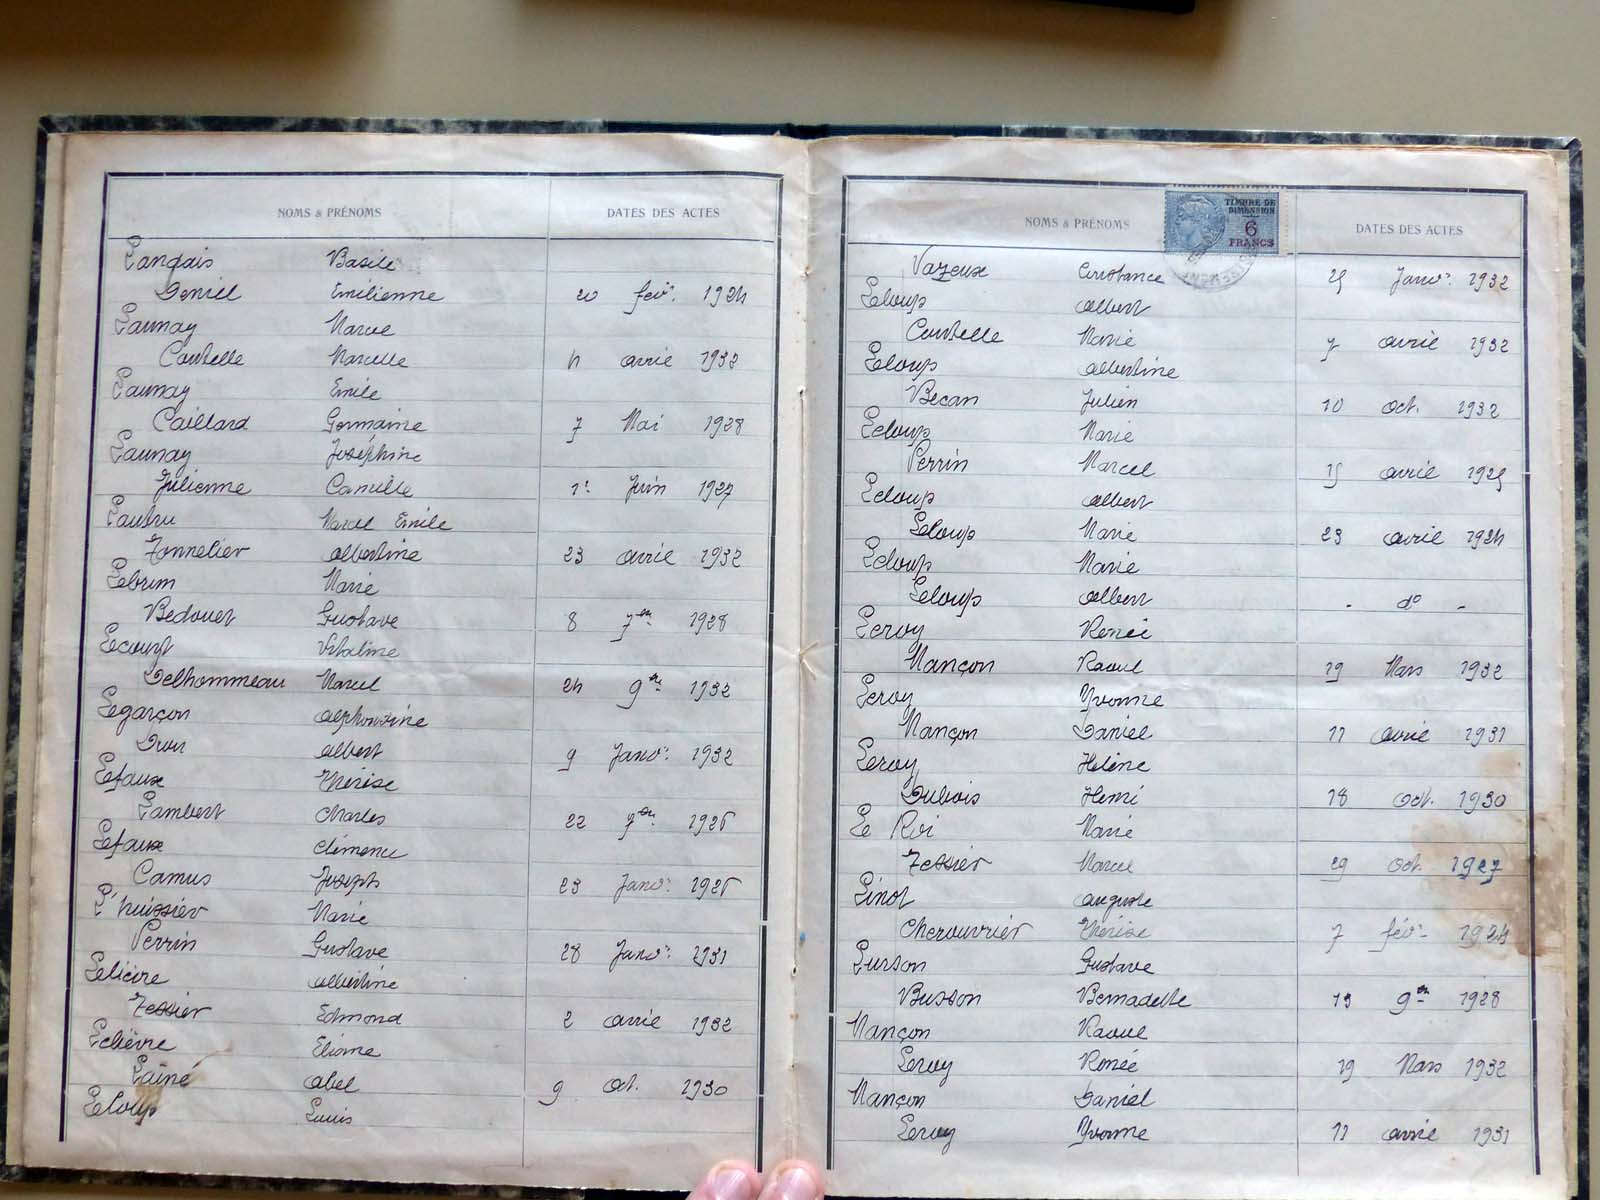 NOMS & PRÉNOMS DATES DES ACTES
Landais Basile
Deniel Emilienne 20 fév: 1924
Launay Marcel
Coutelle Marcelle 4 avril 1932
Launay Emile
Caillard Germaine 7 Mai 1928
Launay Joséphine
Julienne Camille 1: Juin 1927
Lautru Marcel Emile
Tonnelier Albertine 23 avril 1932
Lebrun Marie
Bedouet Gustave 8 7bre 1928
Lecourt Vitaline
Delhommeau Marcel 24 9bre 1932
Legarçon Alphonsine
Albert 9 Janv: 1932
Lefaux Thérèse
Lambert Charles 22 7bre 1926
Lefaux Clémence
Camus Joseph 23 Janv: 1926
L'huissier Marie
Perrin Gustave 28 Janv: 1931
Lelièvre Albertine
Tessier Edmond 2 avril 1932
Lelièvre Eliane
Lainé Abel 9 oct. 1930
Leloup Louis
NOMS & PRÉNOMS DATES DES ACTES
TIMBRE DE DIMENSION
6
FRANCS
Vazeux Constance 25 Janv: 1932
Leloup Albert
Coutelle Marie 7 avril 1932
Leloup Albertine
Becan Julien 10 oct. 1932
Leloup Marie
Perrin Marcel 15 avril 1925
Leloup Albert
Leloup Marie 23 avril 1924
Leloup Marie
Leloup Albert - do -
Leroy Renée
Mançon Raoul 19 Mars 1932
Leroy Yvonne
Mançon Daniel 11 avril 1931
Leroy Hélène
Dubois Henri 18 oct. 1930
Le Roi Marie
Tessier Marcel 29 oct. 1927
Linot Auguste
Cherouvrier Thérèse 7 fév: 1924
Lurson Gustave
Busson Bernadette 13 9bre 1928
Mançon Raoul
Leroy Renée 19 Mars 1932
Mançon Daniel
Leroy Yvonne 11 avril 1931